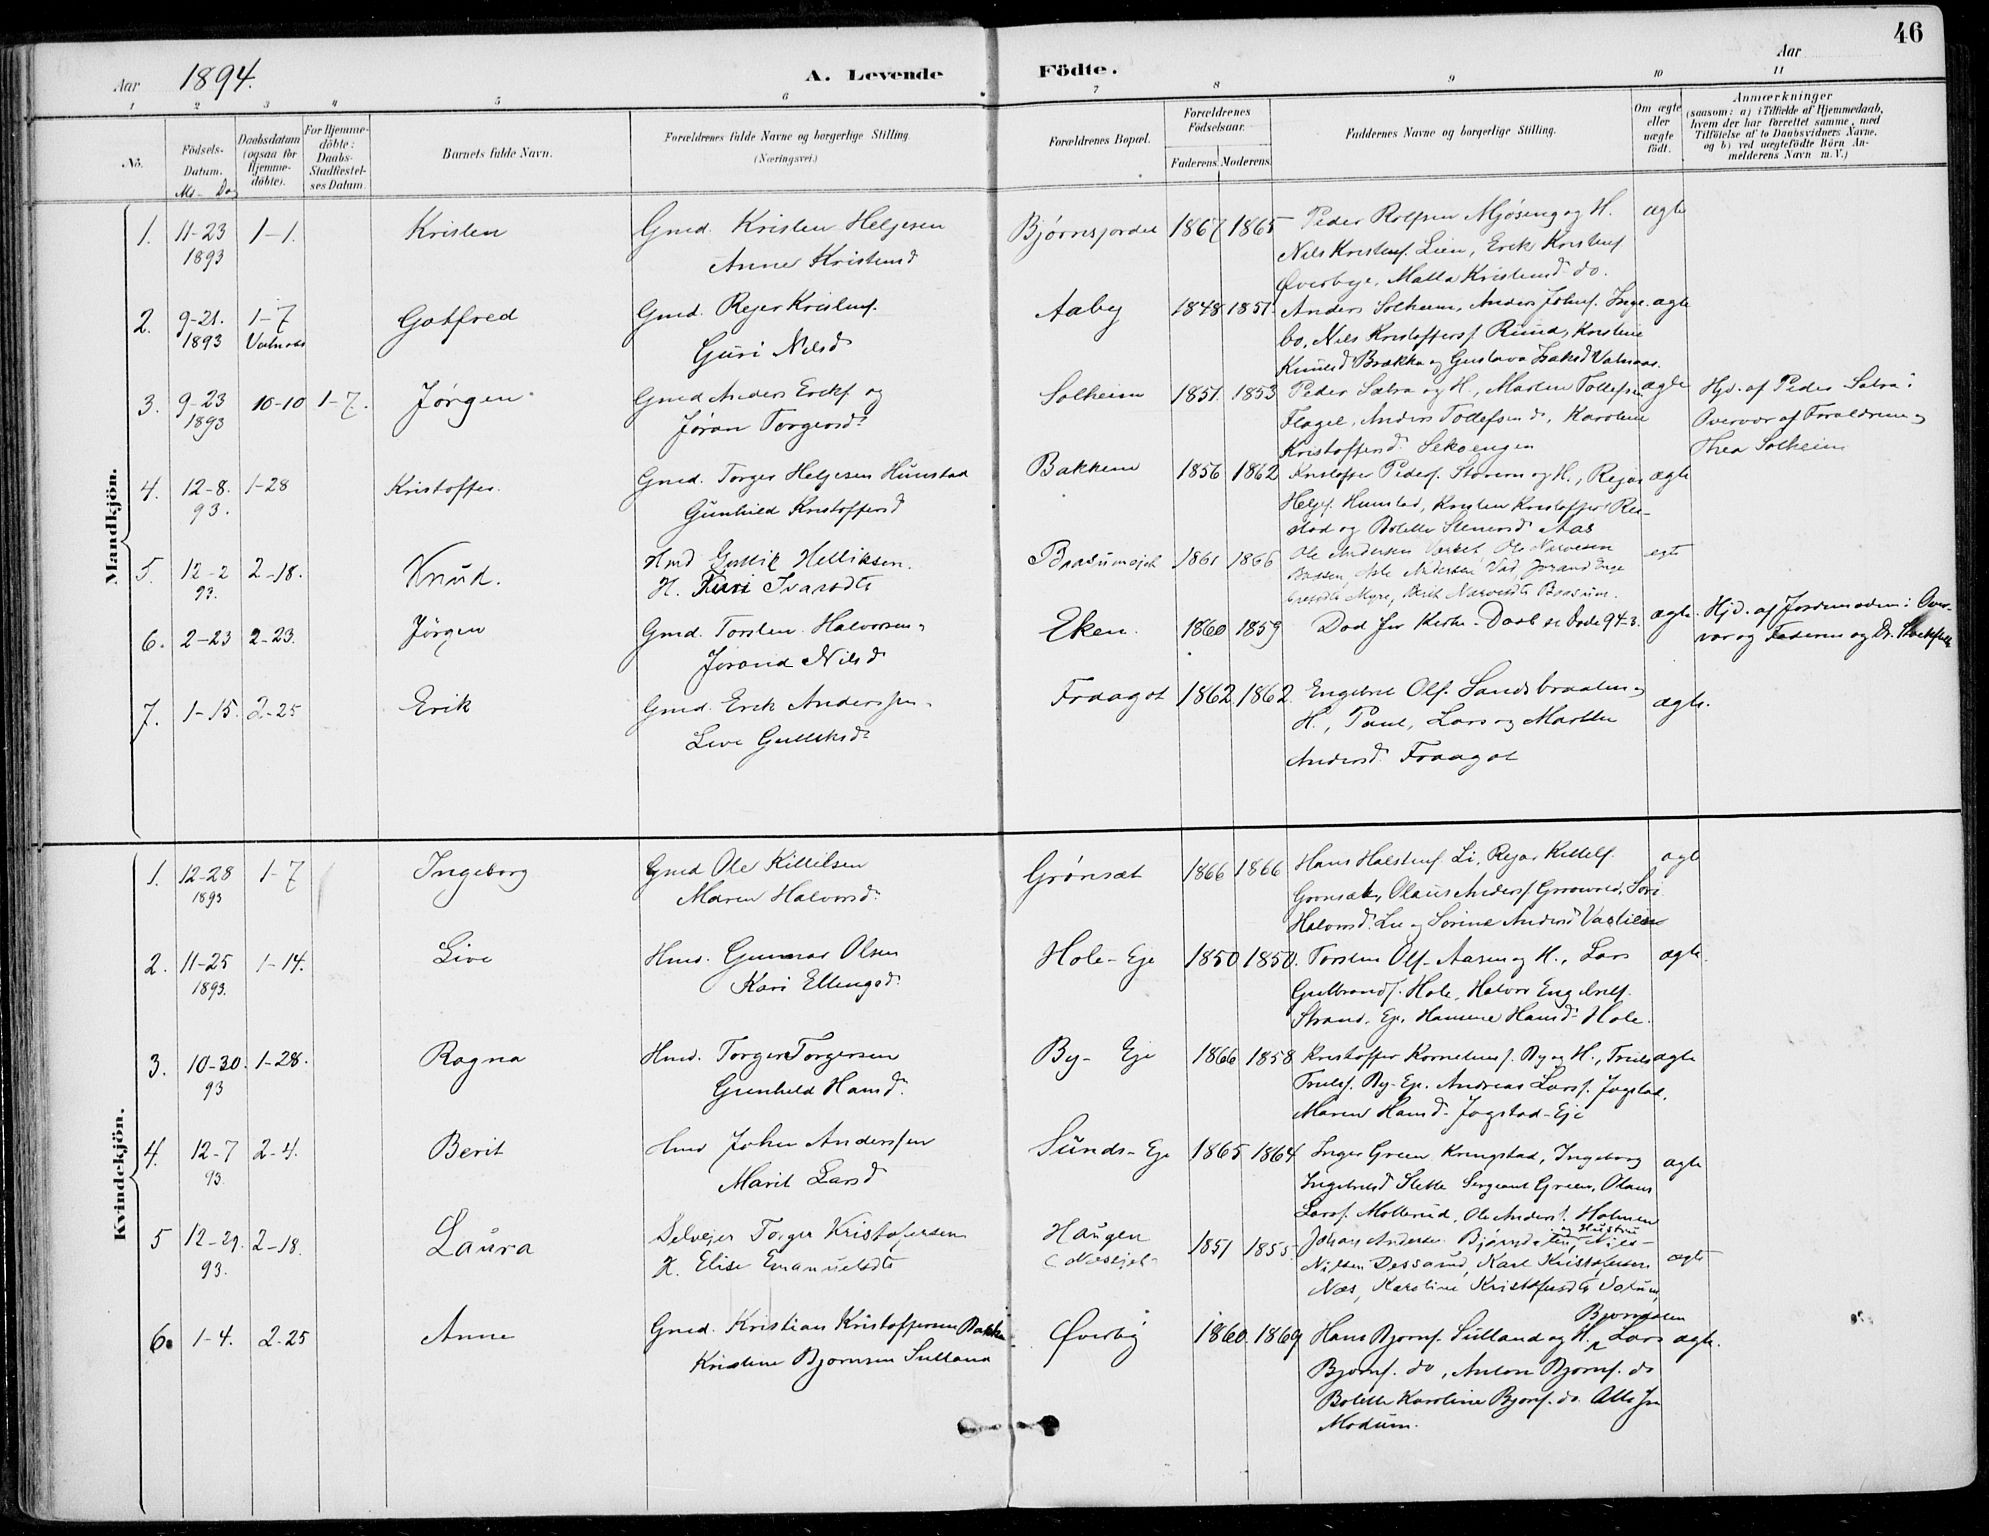 46
Aar 1894. A. Levende Födte. Aar
1 2 3 4 5 6 7 8 9 10 11
No. Födsels-Datum. Daabsdatum (ogsaa for Hjemmedöbte). For Hjemmedöbte: Daabs-Stadfæstelses Datum. Barnets fulde Navn. Forældrenes fulde Navne og borgerlige Stilling. (Næringsvei.) Forældrenes Bopæl. Forældrenes Födselsaar. Faddernes Navne og borgerlige Stilling. Om ægte eller uægte födt. Anmærkninger
(saasom: a) i Tilfælde af Hjemmedaab, hvem der har forrettet samme, med Tilföielse af to Daabsvidners Navne, og b) ved uægtefödte Börn Anmelderens Navn m. V.)
Md - Dag Faderens. Moderens.
Mandkjön.
1. 11-23 1-1. Kristen Gmd. Kristen Helgesen Bjørnsjordet 1867 1865 Peder Rolfsen Mjøseng og H. ægte
1893 Anne Kristensd Nils Kristensf. Lien, Erik Kristensf
Øverbye, Matta Kristensd do.
2. 9-21. 1-7 Gotfred Gmd. Rejer Kristensf. Aaby 1848 1851 Anders Solheim, Anders Johnsf. Inge- ægte
1893 Valnæs Guri Nilsd bo, Nils Kristoffersf. Rund, Kristine
Knudsd Brækka og Gustava Isaksd Valnæs.
3. 9-23 10-10 1-7. Jørgen Gmd Anders Eriksf og Solheim 1851 1853 Peder Sætra og H, Marten Tollefsen ægte Hjd. af Peder Sætra i
1893 Jøran Torgersd. Flagel, Anders Tollefsen d., Karoline Overvær af Forældrene og
Kristoffersd Sekoengen Thea Solheim
4. 12-8. 1-28 Kristoffer. Gmd. Torger Helgesen Hunstad Bakken 1856 1862 Kristoffer Pedersf. Storern og H., Rejar ægte
93. Gunhild Kristoffersd Helgsf. Hunstad, Kristen Kristoffersf Re-
stad og Bolette Stenersd Aas
5. 12-2 2-18. Knud. Hmd Gullik Helliksen. Braasumejet 1861 1866 Ole Andersen Værket, Ole Narvesen egt
93. H. Kari Ivarsdt Brassen, Asle Andersen Vad, Jørand Enge
bretsdt Myre, Berit Narvesdt Braasum.
6. 2-23 2-23. Jørgen Gmd. Torsten Halvorsen og Eken. 1860 1859 Død før Kirke-Daab se Døde 94-3. ægte Hjd. af Jordemoderen i Over-
Jorand Nilsd vær og Faderen og
7. 1-15. 2-25 Erik Gmd. Erik Anderssen og Fraagot 1862 1862 Engebret Olsf. Sandsbraaten og ægte.
Live Gulliksd H., Paul, Lars og Marthe
Andersd. Fraagot
Kvindekjön.
1. 12-28 1-7 Ingeborg Gmd Ole Kittilsen Grönsæt 1866 1866 Hans Halstensf. Li, Rejar Kittilsf. ægte
1893 Maren Halvorsd. Grønsæt, Olaus Andersf. Grønvold, Siri
Halvorsd. Li og Sørine Andersd Væstlien
2. 11-25 1-14. Live Hmd. Gunnar Olsen Hole-Eje 1850 1850. Torsten Olsf. Aasen og H., Lars ægte.
1893. Kari Ellingsd. Gulbrandsf. Hole, Halvor Engebretsf.
Strand. Eje, Hanne Hansd. Hole.
3. 10-30. 1-28. Ragna Hmd. Torger Torgersen By-Eje 1866 1858 Kristoffer Korneliusf. By og H., Truls ægte
93 Gunhild Hansd. Trulsf. By-Eje. Andreas Larsf. Jogstad,
Maren Hansd. Jogstad-Eje
4. 12-7 2-4. Berit Hmd Johan Anderssen Sunds-Eje 1865 1864 Inger Green Kringstad, Ingeborg ægte
93. Marit Larsd Ingebretsd Slette Sergeant Green, Olaus
Larsf. Mollerud, Ole Andersf. Holmen
5 12-29. 2-18. Laura Selvejer Torger Kristofersen Haugen 1851 1855. Johan Andersen Bjørndalen og Hustru, Nils ægte
93. H. Elise Emanuelsdt (Næsejet. Nilsen Dessarud, Karl Kristofersen
Næs, Karoline Kristofersdt
6. 1-4. 2-25 Anne Gmd. Kristian Kristoffersen Bakke Øverby 1860. 1869 Hans Bjørnsf. Sulland og H., Lars Bjørndalen ægte.
Kristine Bjørnsen Sulland Bjørnsf. do, Anton Bjørnsf. do
Bolette Karoline Bjørnsf. do. Alle fra
Modum.